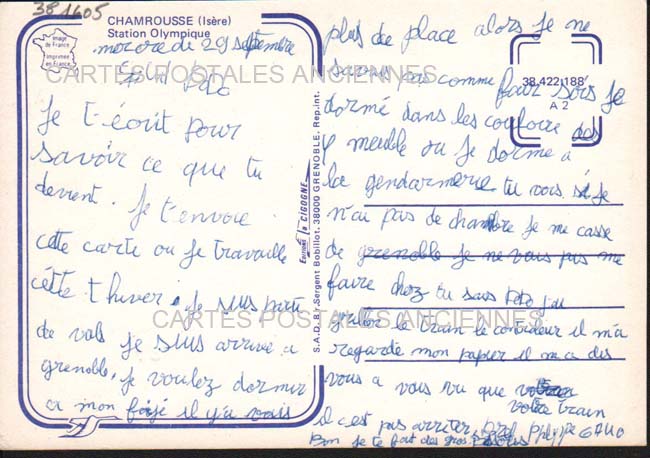 38 1605
CHAMROUSSE (Isère)
Station Olympique
Image de France
Imprimée en France
mercre di 29 septembre
Salut Toto
Je t-écrit pour
savoir ce que tu
devent. Je t'envoie
cette carte ou Je travaille
cette t hiver. Je suis partie
de vals Je suis arrive a
grenoble. Je voulez dormir
a mon il y a vais
plus de place alors Je ne
savais pas comme fair sois Je
dormé dans les couloire des
meuble ou Je dorme a
la gendarmerie tu vois si Je
n'ai pas de chambre Je me casse
de grenoble Je ne vous pas me
faire chez tu sais Toto J'ai
le train le controleur il m'a
regarde mon papier il m'a dis
vous a vous vu que
votre train
il c'est pas arriter Philippe
Bon Je te fait des gros
38.422.188
A 2
Editions la CIGOGNE
S.A.D. 8 r. Sergent Bobillot, 38000 GRENOBLE. Rep. int.
CARTES POSTALES ANCIENNES
CARTES POSTALES ANCIENNES